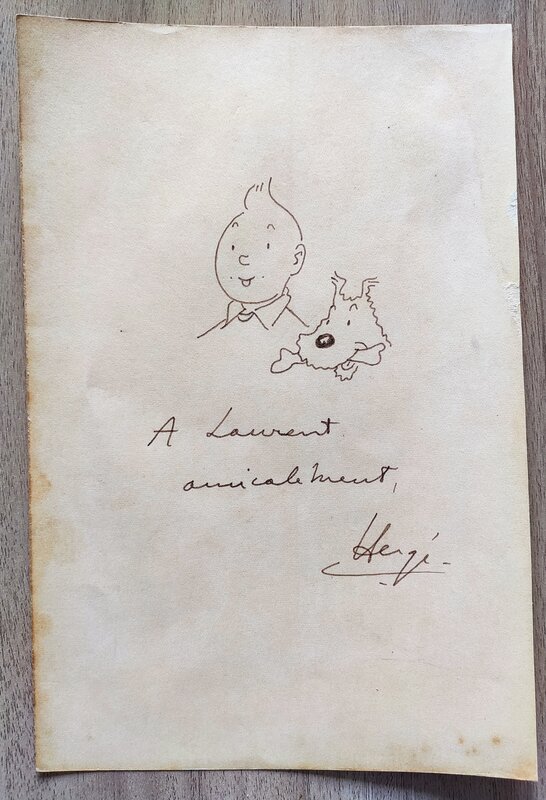 A Laurent
amicalement,
Hergé.